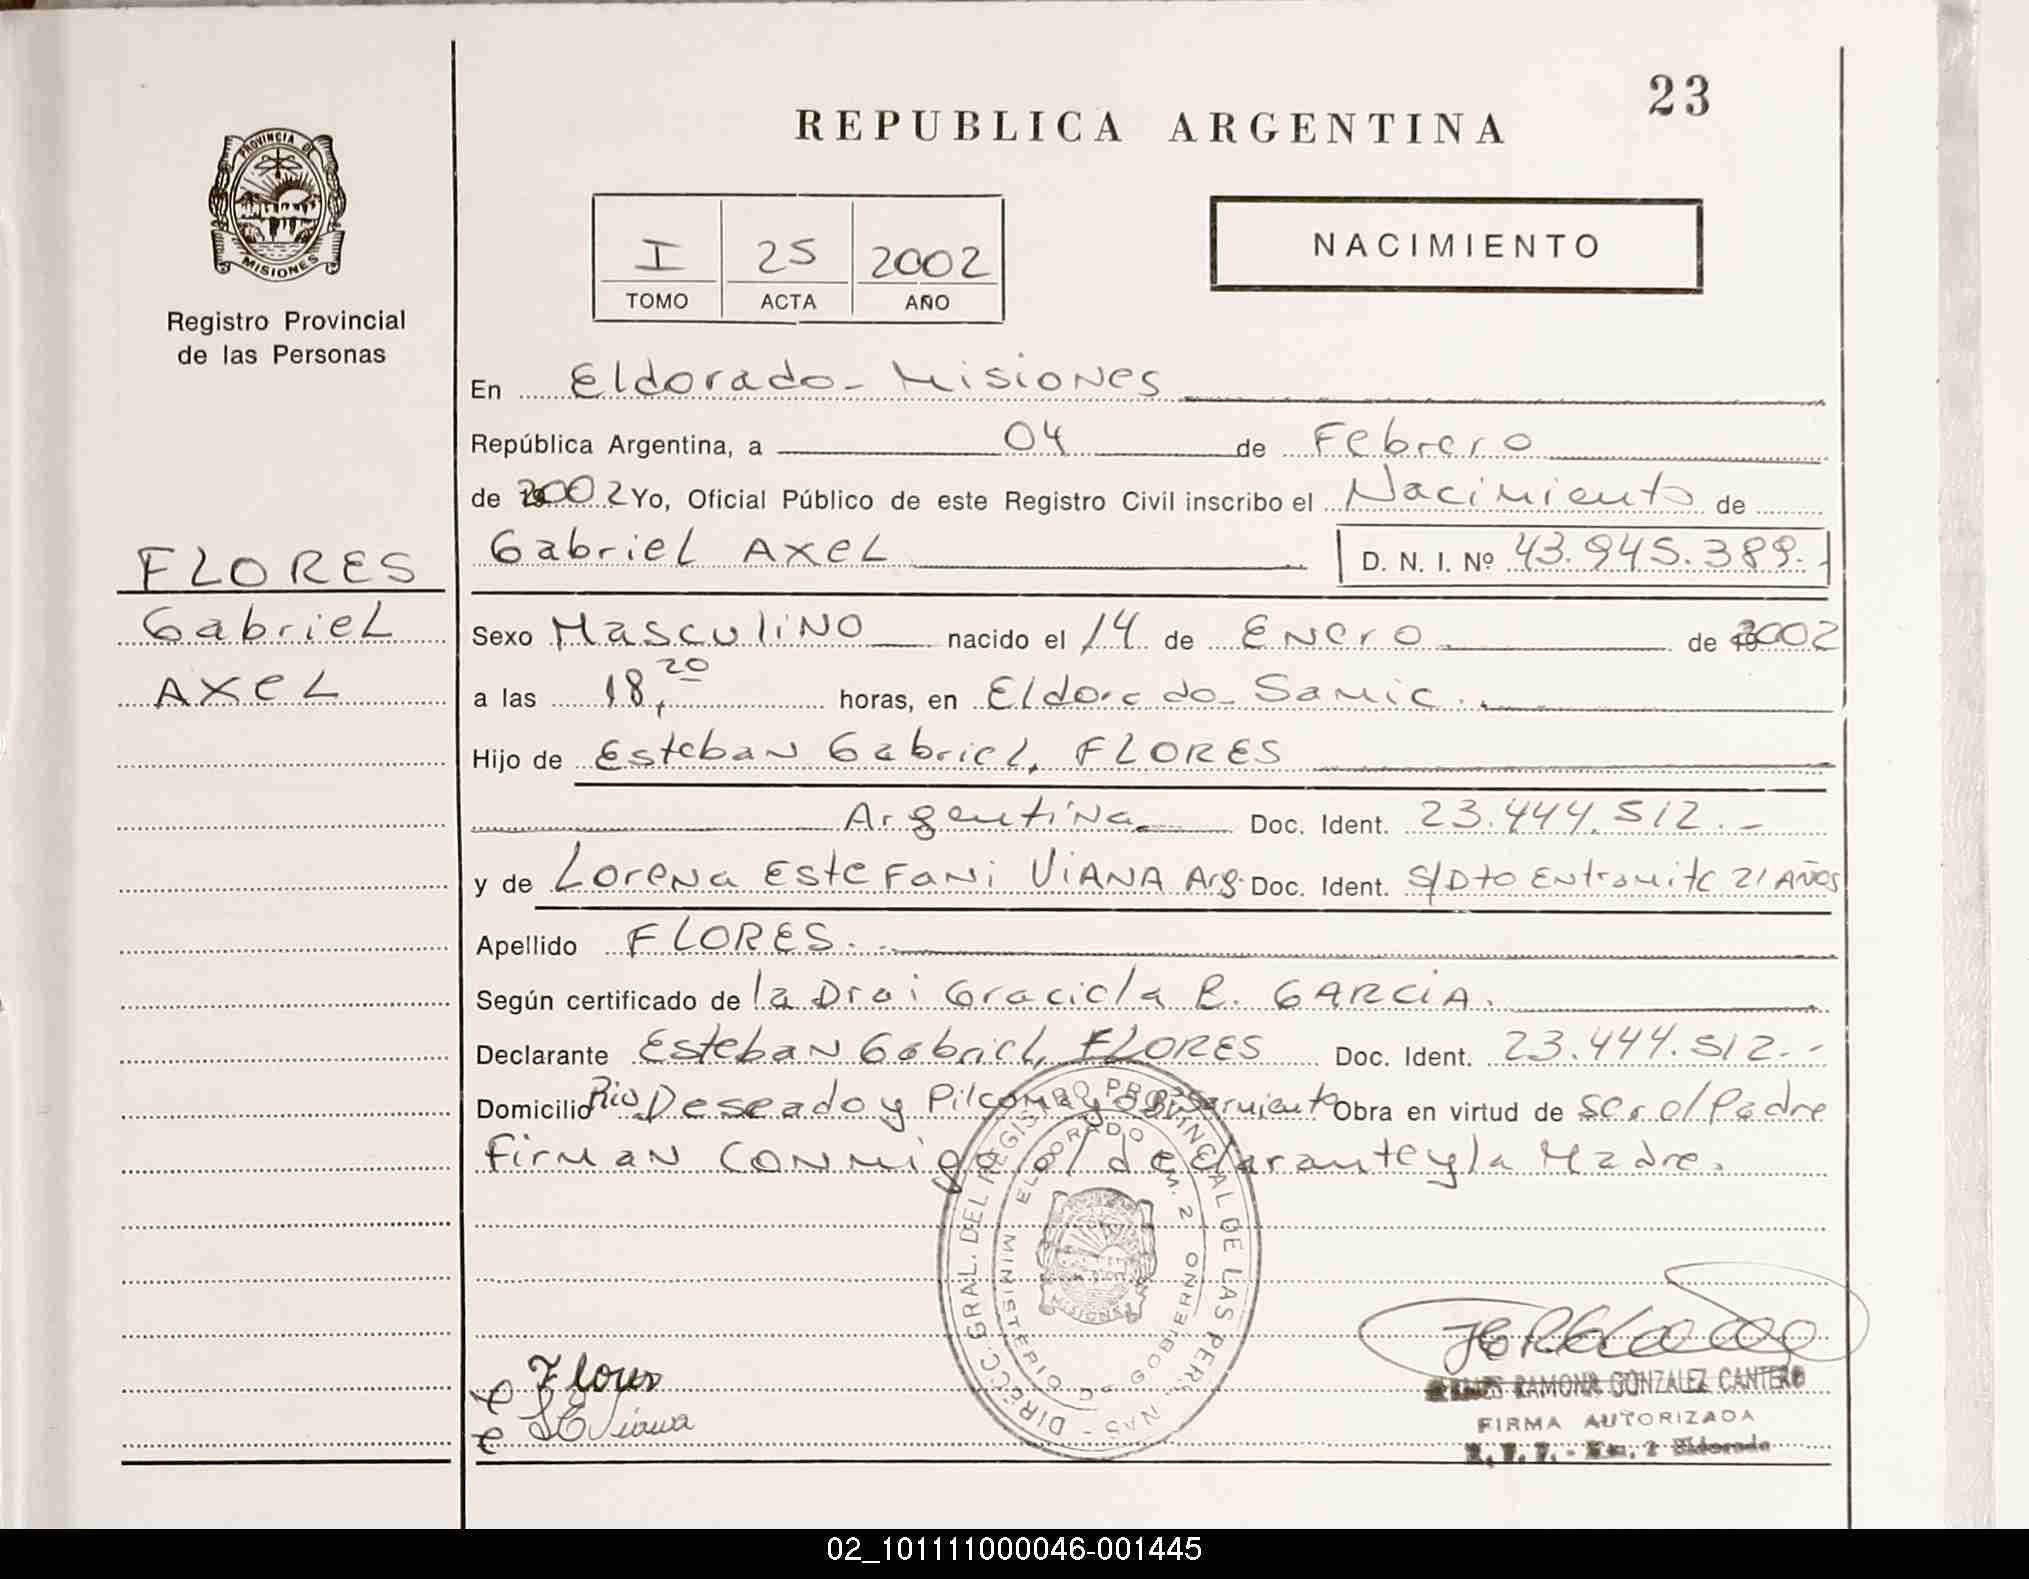 23
REPUBLICA ARGENTINA
PROVINCIA DE
MISIONES
Registro Provincial
de las Personas
I 25 2002
TOMO ACTA AÑO
NACIMIENTO
En Eldorado - Misiones
República Argentina, a 04 de Febrero
de 2002 Yo, Oficial Público de este Registro Civil inscribo el Nacimiento de
Gabriel AXEL D. N. I. Nº 43.945.389.-
FLORES
Gabriel
AXEL
Sexo Masculino nacido el 14 de Enero de 2002
a las 18,20 horas, en Eldorado - Samic.
Hijo de Esteban Gabriel, FLORES
Argentina Doc. Ident. 23.444.512.-
y de Lorena Estefani VIANA Arg. Doc. Ident. S/Dto En tramite 21 AÑOS
Apellido FLORES.-
Según certificado de la Dra: Graciela R. GARCIA.
Declarante Esteban Gabriel, FLORES Doc. Ident. 23.444.512.-
Domicilio Rio Deseado y Pilcomayo Bº Sarmiento Obra en virtud de ser el Padre
Firman conmigo el declarante y la Madre.
DIRECC. GRAL. DEL REGISTRO PROVINCIAL DE LAS PERS. NAS -
ELDORADO KM. 2
MINISTERIO DE GOBIERNO
MISIONES
Flores
L E Viana
RAMONA GONZALEZ CANTERO
FIRMA AUTORIZADA
Km. 2 Eldorado
02_101111000046-001445